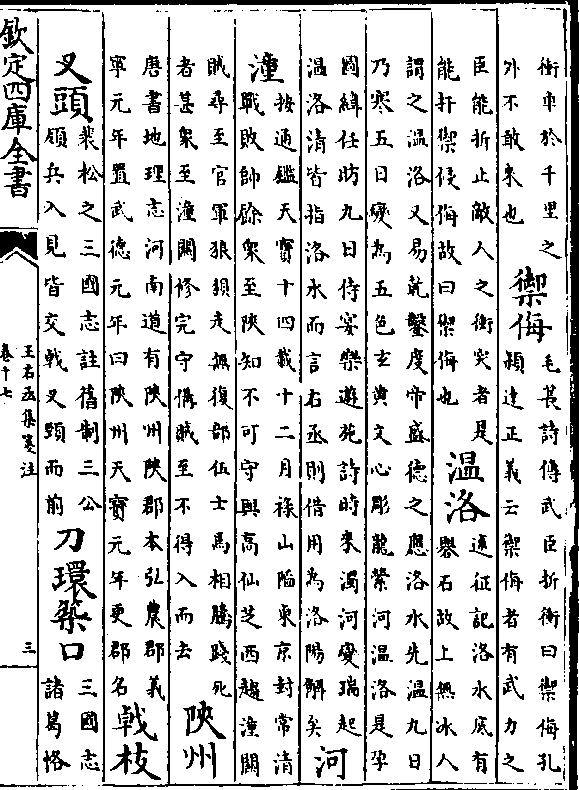 衝車於千里之
外不敢来也
禦侮
毛萇詩傳武臣折衝曰禦侮孔
頴達正義云禦侮者有武力之
臣能折止敵人之衝突者是
能扞禦侵侮故曰禦侮也
温洛
述征記洛水底有
礜石故上無冰人
謂之温洛又易乾鑿度帝盛德之應洛水先温九日
乃寒五日變為五色玄黄文心彫龍縈河温洛是孕
圖緯任昉九日侍宴樂遊苑詩時来濁河變瑞起
温洛清皆指洛水而言右丞則借用為洛陽解矣
河
潼
按通鑑天寳十四載十二月祿山陥東京封常清
戰敗帥餘衆至陜知不可守與高仙芝西趨潼闗
賊尋至官軍狼狽走無復部伍士馬相騰踐死
者甚衆至潼闗修完守備賊至不得入而去
陜州
唐書地理志河南道有陜州陜郡本弘農郡義
寧元年置武德元年曰陜州天寳元年更郡名
戟枝
叉頭
裴松之三國志註舊制三公
領兵入見皆交戟叉頸而前
刀環築口
三國志
諸葛恪
欽定四庫全書
王右丞集箋注
卷十七
三